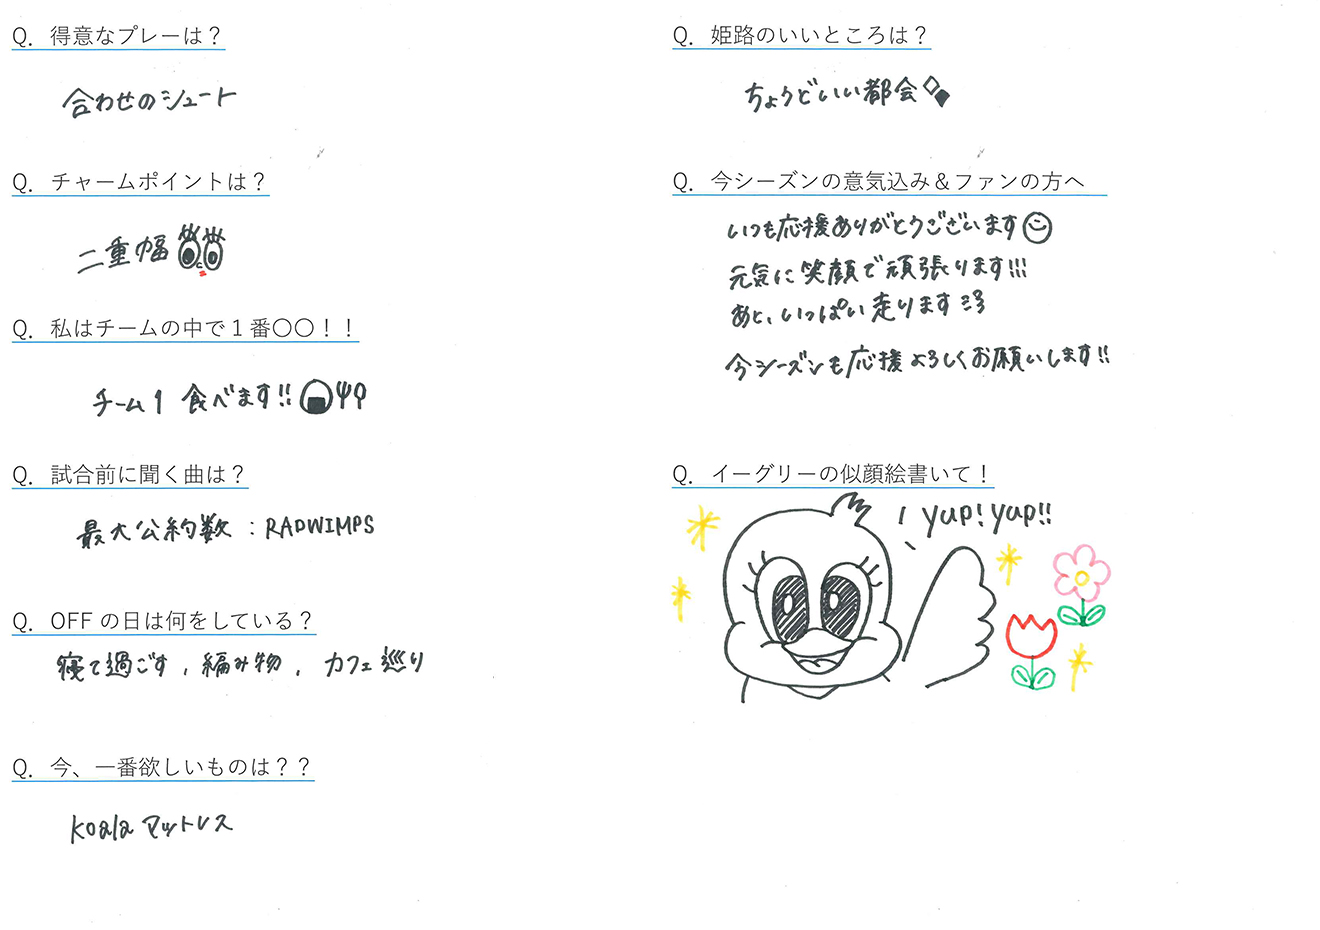 Q. 得意なプレーは？
合わせのシュート
Q. チャームポイントは？
二重幅
Q. 私はチームの中で１番〇〇！！
チーム1 食べます!!
Q. 試合前に聞く曲は？
最大公約数：RADWIMPS
Q. OFFの日は何をしている？
寝て過ごす, 編み物, カフェ巡り
Q. 今、一番欲しいものは？？
koala マットレス
Q. 姫路のいいところは？
ちょうどいい都会
Q. 今シーズンの意気込み＆ファンの方へ
いつも応援ありがとうございます
元気に笑顔で頑張ります!!!
あと、いっぱい走ります
今シーズンも応援よろしくお願いします!!
Q. イーグリーの似顔絵書いて！
yup! yup!!